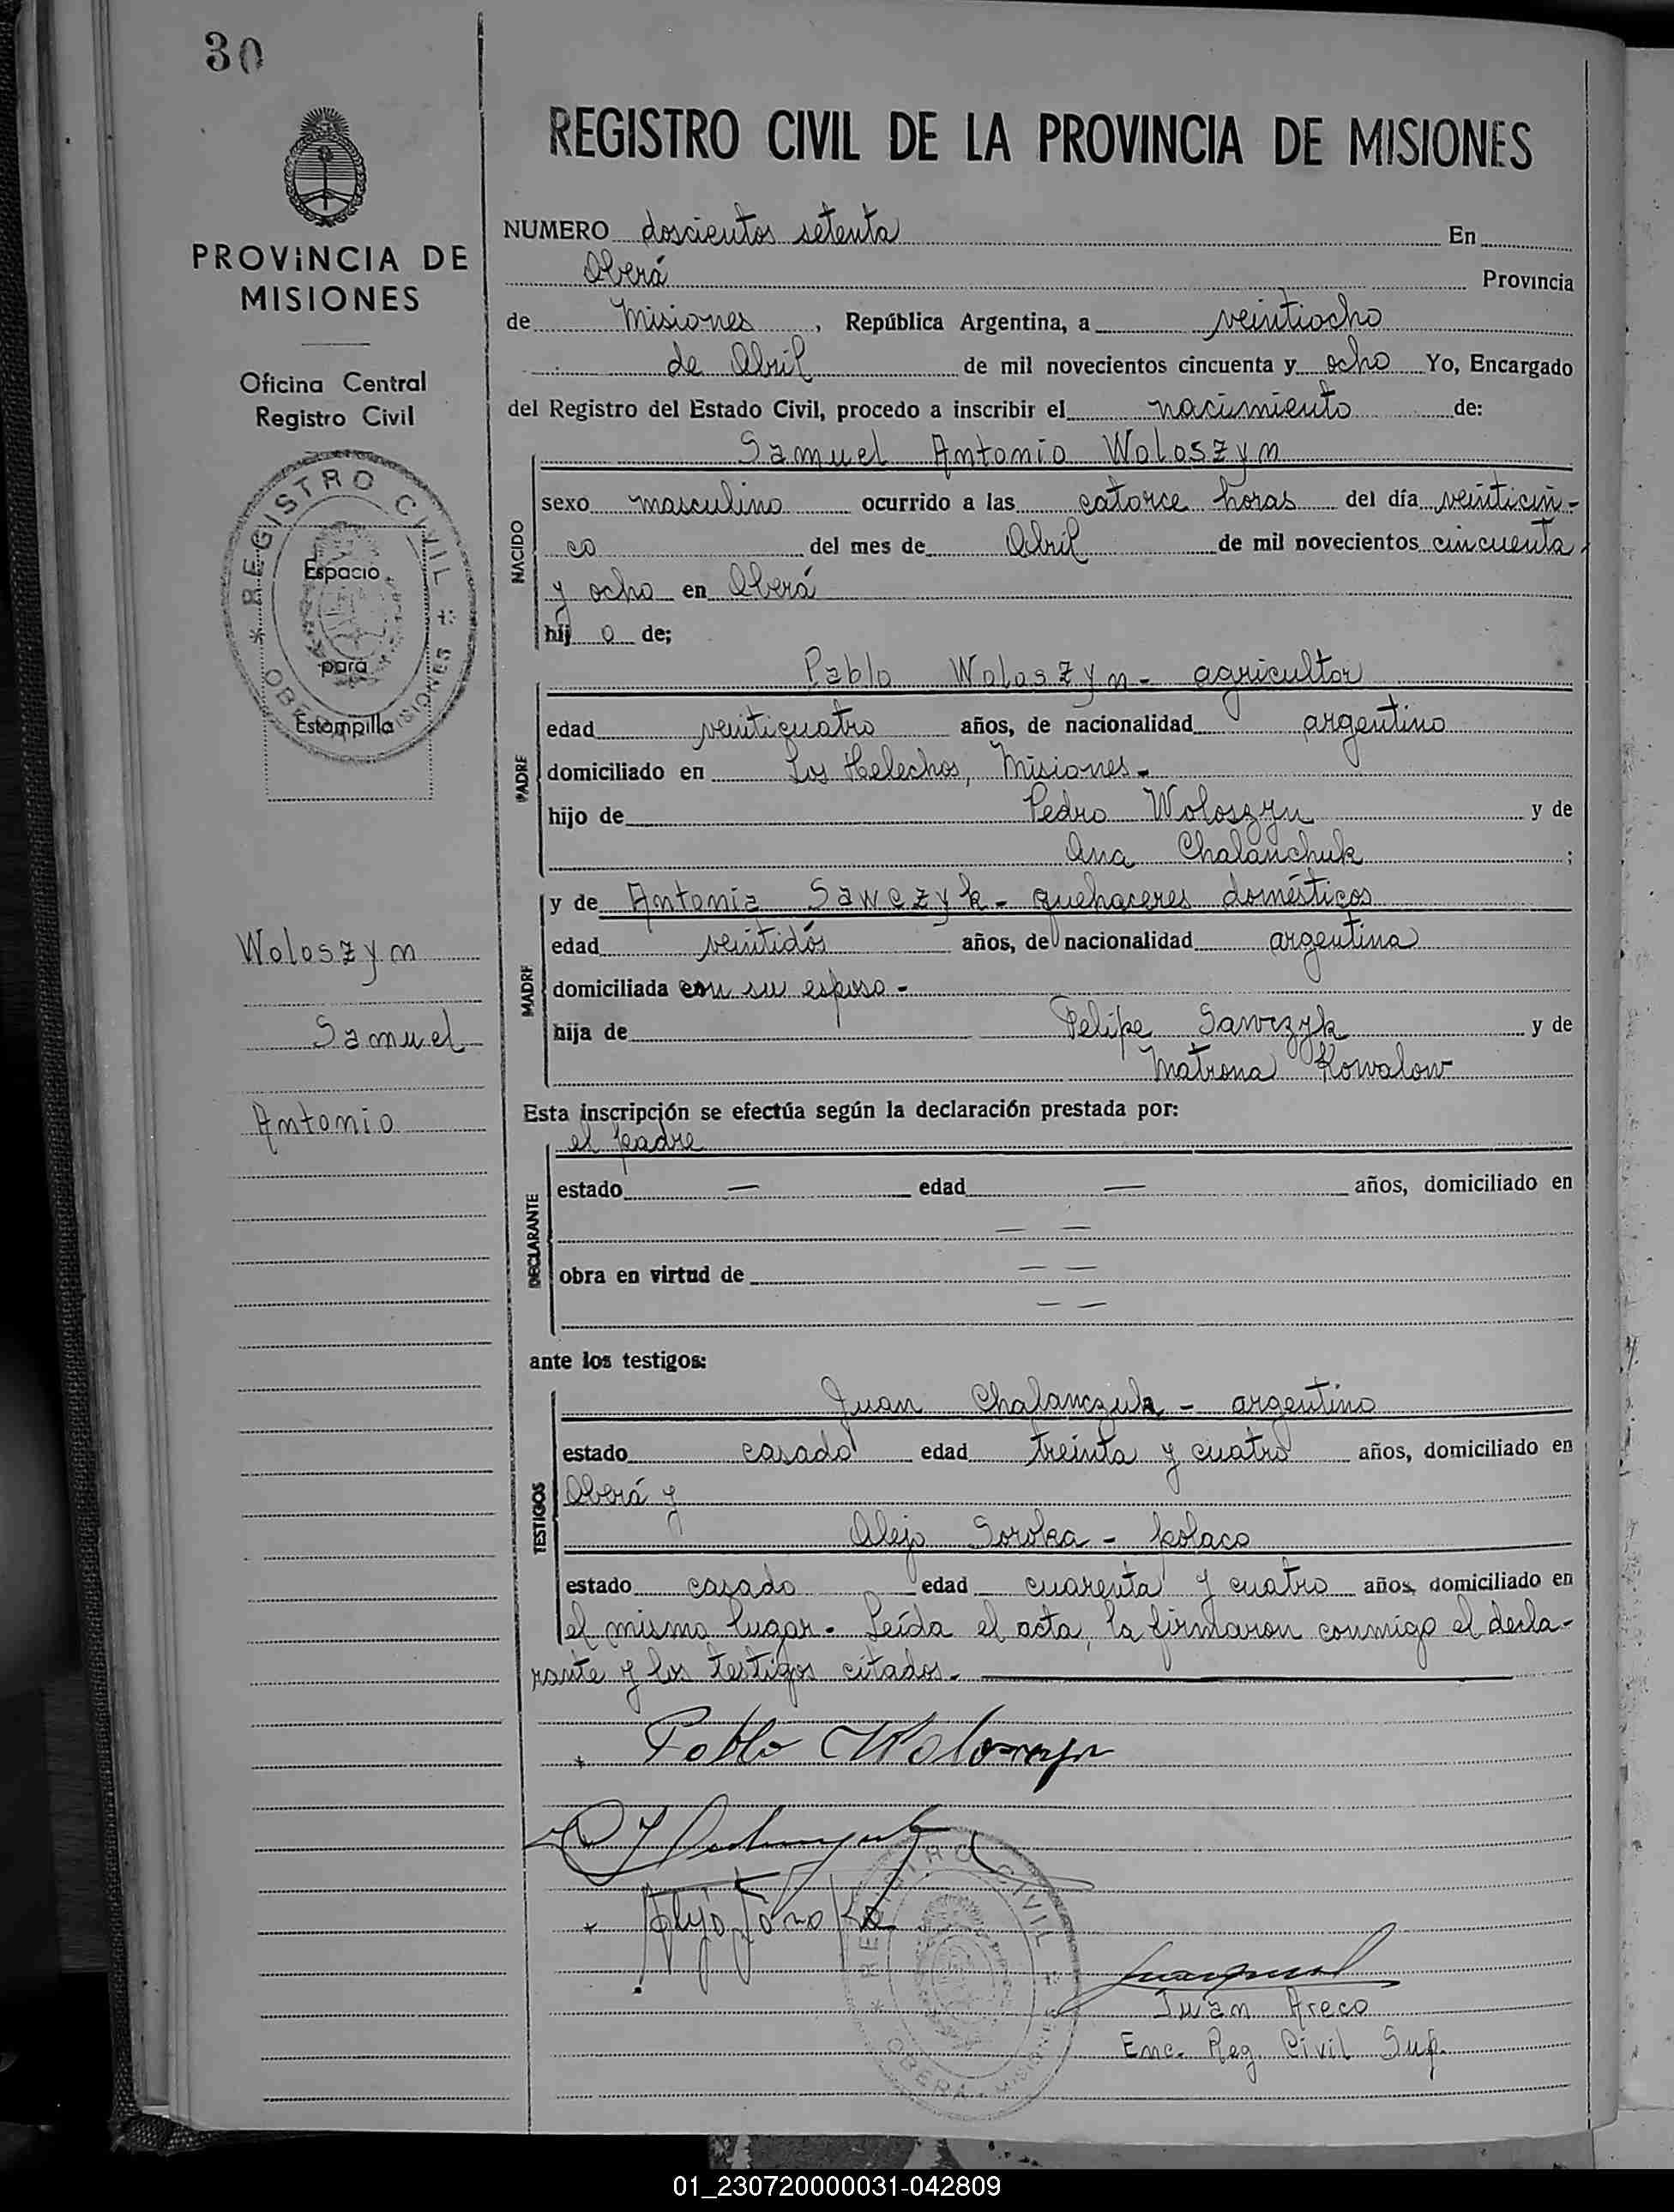 30
PROVINCIA DE
MISIONES
Oficina Central
Registro Civil
REGISTRO CIVIL
OBERÁ MISIONES
Espacio
para
Estampilla
Woloszyn
Samuel
Antonio
REGISTRO CIVIL DE LA PROVINCIA DE MISIONES
NUMERO doscientos setenta En
Oberá Provincia
de Misiones, República Argentina, a veintiocho
de Abril de mil novecientos cincuenta y ocho Yo, Encargado
del Registro del Estado Civil, procedo a inscribir el nacimiento de:
Samuel Antonio Woloszyn
NACIDO
sexo masculino ocurrido a las catorce horas del día veinticin-
co del mes de Abril de mil novecientos cincuenta
y ocho en Oberá
hij o de;
Pablo Woloszyn - agricultor
PADRE
edad veinticuatro años, de nacionalidad argentino
domiciliado en Los Helechos, Misiones.-
hijo de Pedro Woloszyn y de
Ana Chalanchuk ;
y de Antonia Sawczyk - quehaceres domésticos
MADRE
edad veintidós años, de nacionalidad argentina
domiciliada con su esposo -
hija de Felipe Sawczyk y de
Matrona Kowalow
Esta inscripción se efectúa según la declaración prestada por:
el padre
DECLARANTE
estado — edad — años, domiciliado en
— —
obra en virtud de — —
— —
ante los testigos:
Juan Chalanczuk - argentino
TESTIGOS
estado casado edad treinta y cuatro años, domiciliado en
Oberá y
Alejo Soroka - polaco
estado casado edad cuarenta y cuatro años, domiciliado en
el mismo lugar.- Leída el acta, la firmaron conmigo el decla-
rante y los testigos citados.-
Pablo Woloszyn
Alejo Soroka
REGISTRO CIVIL
OBERÁ - MISIONES
Juan Areco
Enc. Reg. Civil Sup.
01_230720000031-042809